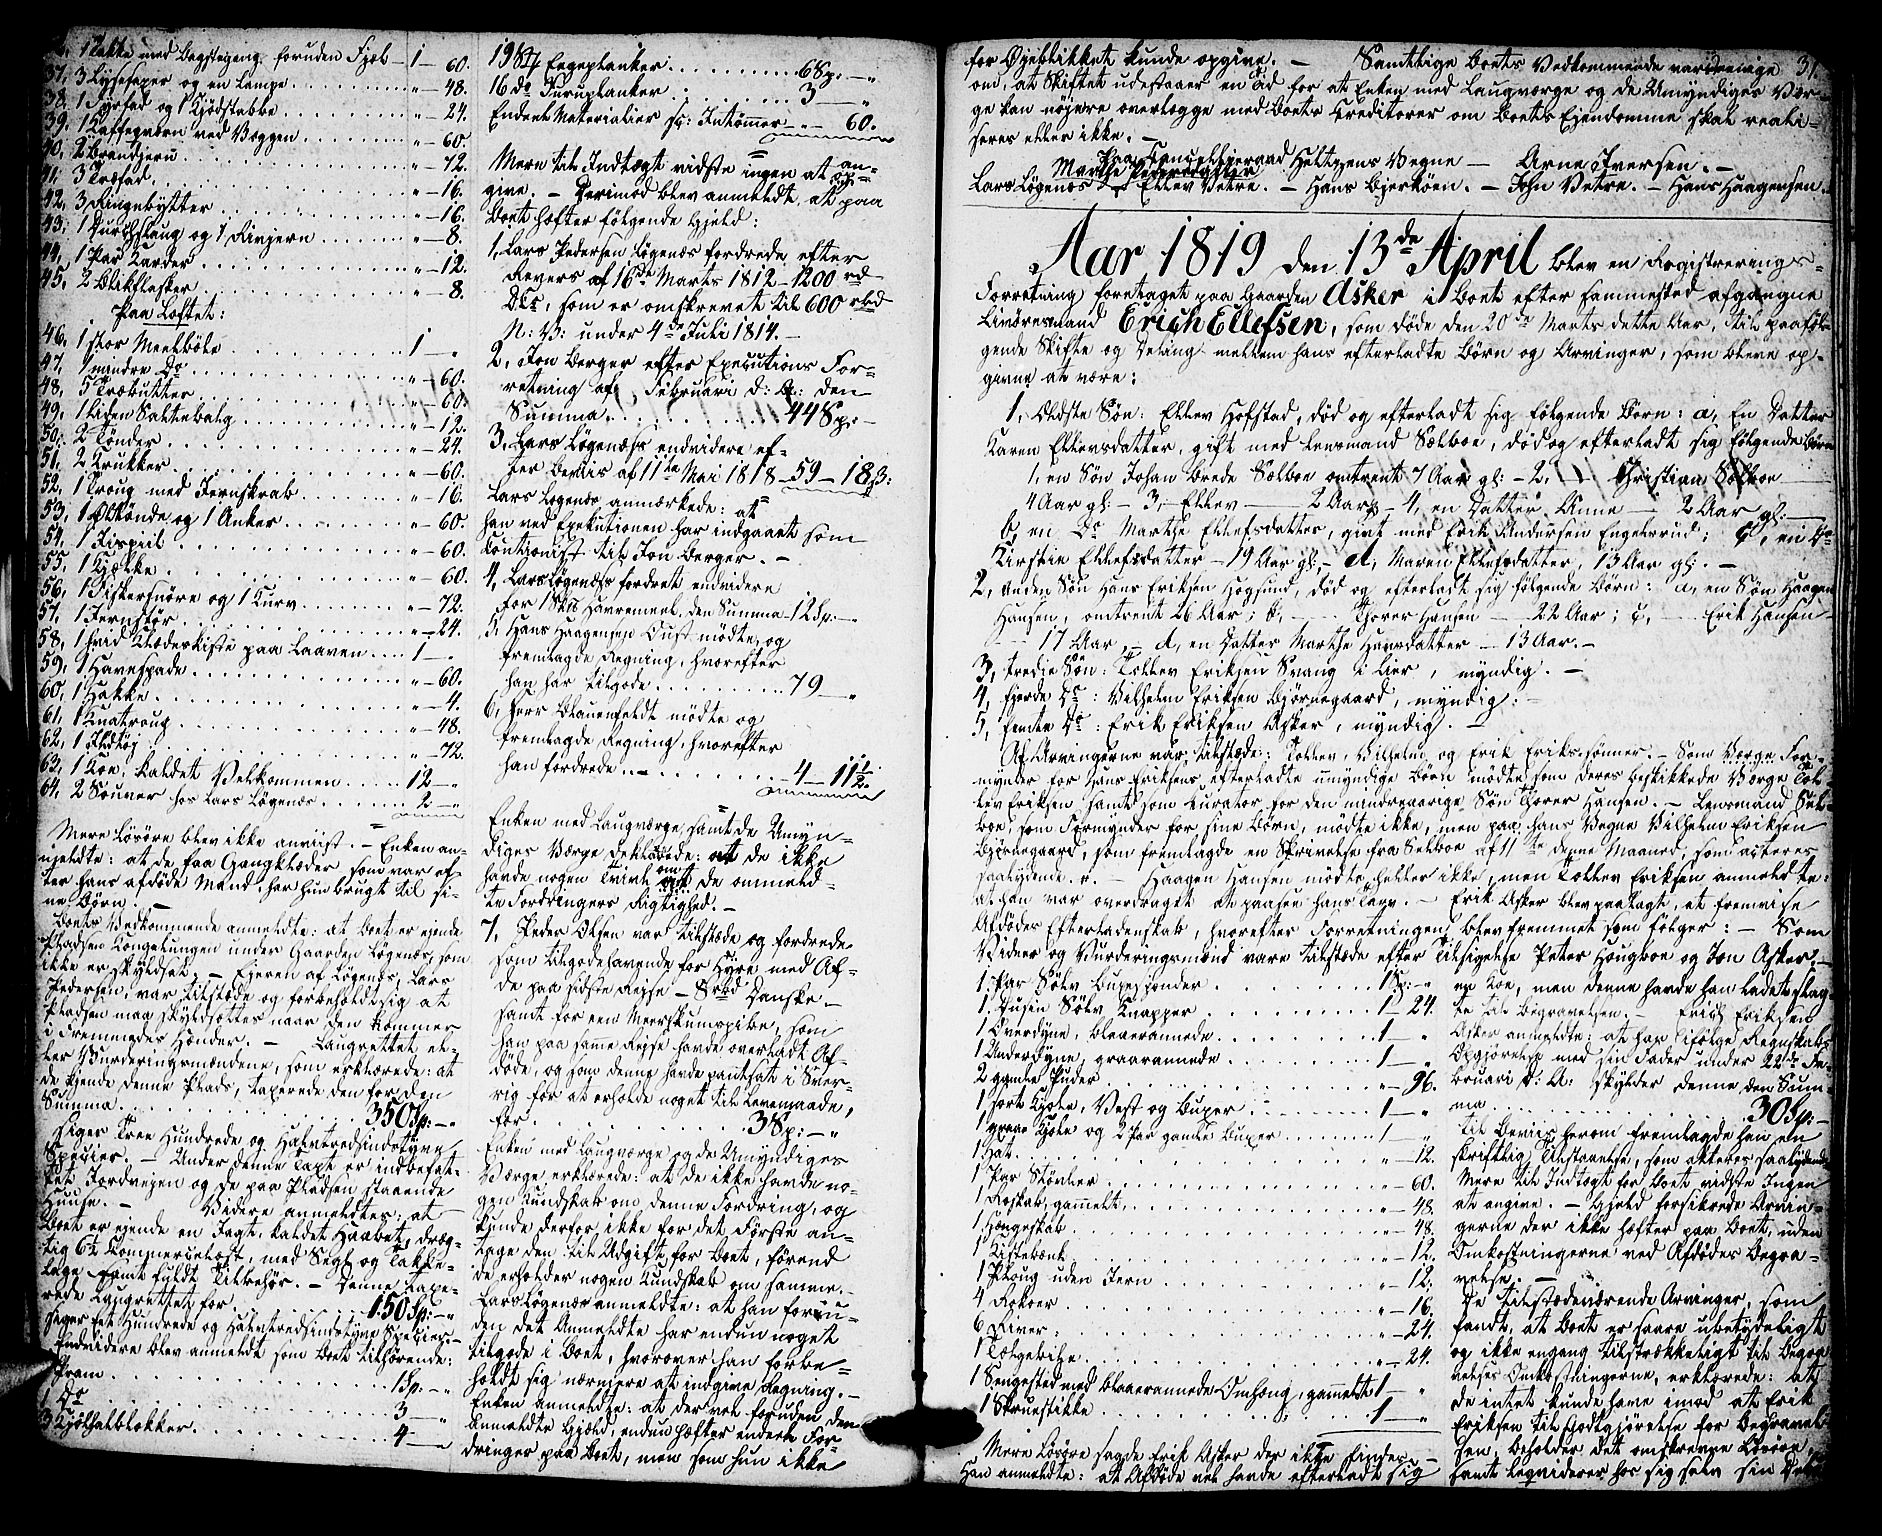 1 Bakke med Dagstegang, foruden Fjæl 1 — 60.
37, 3 Lysesaxer og en Lampe " — 48.
38, 1 Fyrfad og 1 Kjødstabbe " — 24.
39, 1 Kaffeqværn ved Væggen " — 60.
40, 2 Brandjern " — 72.
41, 3 Træfad " — 16.
42, 3 Ringebytter " — 16.
43, 1 Durchslaug og 1 Rivjern " — 8.
44, 1 Par Karder " — 12.
45, 2 Blikflasker " — 8.
Paa Loftet:
46, 1 stor Meelbøle 1 — "
47, 1 mindre Do " — 60.
48, 5 Træbutter " — 60.
49, 1 liden Saltebalg " — 12.
50, 2 Tønder " — 24.
51, 2 Krukker " — 60.
52, 1 Troug med Jernskrab " — 16.
53, 1 Øltønde og 1 Anker " — 60.
54, 1 Fispiil " — 60.
55, 1 Kjælke " — 60.
56, 1 Fiskersnøre og 1 Kurv " — 72.
57, 1 Jernstør " — 24.
58, 1 hvid Klæderkiste paa Laaven 1 — "
59, 1 Havespade " — 60.
60, 1 Hakke " — 4.
61, 1 Knatroug " — 48.
62, 1 Ildtøj " — 72.
63, 1 Koe, kaldet Velkommen 12 — "
64, 2 Souver hos Lars Løgenæs 2 — "
Mere Løsøre blev ikke anviist. — Enken an-
meldte: at de faa Gangklæder som var ef-
ter hans afdøde Mand, har hun brugt til si-
ne Børn. —
Boets Vedkommende anmeldte: at Boet er ejende
Pladsen Kongelungen under Gaarden Løgenæs, som
ikke er skyldsat. — Ejeren af Løgenæs, Lars
Pedersen, var tilstæde og forbeholdt sig at
Pladsen maa skyldsættes naar den kommer
i Fremmedes Hænder. — Laugrettet el-
ler Vurderingsmændene, som erklærede: at
de kjende denne Plads, taxerede den for den
Summa 350 Sp: — "
siger Tree Hundrede og Halvtredsindstyve
Species. — Under denne Taxt er indbefat-
tet Jordvejen og de paa Pladsen staaende
Huuse. — Videre anmeldtes: at
Boet er ejende en Jagt, kaldet Haabet, dræg-
tig 6 1/2 Commercelæst, med Segl og Takke-
lage samt fuldt Tilbehør. — Denne taxe-
rede Laugrettet for 150 Sp: — "
siger Eet Hundrede og Halvtredsindstyve Species. —
Endvidere blev anmeldt som Boet tilhørende:
1 Pram 1 Sp. — "
1 Do 3 — "
3 Kjølhalblokker 4 — "
19 Egeplanker 6 Sp: — "
16 do Furuplanker 3 — "
Endeel Materialier sc: Intømmer — 60.
Mere til Indtægt vidste ingen at an-
give. — Derimod blev anmeldt, at paa
Boet hæfter følgende Gjeld:
1, Lars Pedersen Løgenæs fordrede efter
Revers af 16de Marts 1812 — 1200 rd
DCr, som er omskrevet til 600 rbd
N: V: under 4de Juli 1814. —
2, Jon Berger efter Executions For-
retning af Februari d: A: den
Summa 448 Sp: —
3, Lars Løgenæs endvidere ef-
ter Beviis af 11te Mai 1818 — 59 — 18 ß:
Lars Løgenæs anmærkede: at
han ved Exekutionen har indgaaet som
Cautionist til Jon Berger. —
4, Lars Løgenæs fordret endvidere
for 1 Skp Havremeel den Summa — 12 Sp: — "
5, Hans Haagensen Oust mødte og
fremlagde Regning, hvorefter
han har tilgode 79 — "
6, Herr Blauenfeldt mødte og
fremlagde Regning, hvorefter
han fordrede 4 — 11 1/2.
Enken med Laugværge, samt de Umyn-
diges Værge deklarede: at de ikke
havde nogen Tvivl om de anmeld-
te Fordringers Rigtighed. —
7, Peder Olsen var tilstæde og fordrede
som tilgodehavende for Hyre med Af-
de paa sidste Rejse — 5 rbd Danske —
samt for een Meerskumspibe, som
han paa samme Rejse havde overladt Af-
døde, og som denne havde pantsat i Sver-
rig for at erholde noget til Levemaade,
for 3 Sp: — "
Enken med Laugværge og de Umyndiges
Værge erklærede: at de ikke havde no-
gen Kundskab om denne Fordring, og
kunde derfor ikke for det Første an-
tage den til Udgift for Boet, førend
de erholder nogen Kundskab om samme. —
Lars Løgenæs anmeldte: at han foru-
den det Anmeldte har endnu noget
tilgode i Boet, hvorover han forbe-
holdt sig nærmere at indgive Regning. —
Enken anmeldte: at der vel foruden den
Anmeldte Gjeld, endnu hæfter endeel For-
dringer paa Boet, men som hun ikke
for Øjeblikket kunde opgive. — Samtlige Boets Vedkommende var enige 31.
om, at Skiftet udestaaer en Tid for at Enken med Laugværge og de Umyndiges Vær-
ge kan nøjere overlægge med Boets Creditorer om Boets Ejendomme skal reali-
seres eller ikke. —
Paa Cancelliraad Heltzens Vegne — Arne Iversen. —
Marthe Pedersdatter
Lars Løgenæs — Ellev Vetre. — Hans Bjerkøen. — John Vetre. — Hans Haagensen.
Aar 1819 den 13de April blev en Registrerings-
Forretning foretaget paa Gaarden Asker i Boet efter sammested afgangne
Livøresmand Erich Ellefsen, som døde den 20de Marts dette Aar, til paaføl-
gende Skifte og Deling mellem hans efterladte Børn og Arvinger, som bleve op-
givne at være:
1, Ældste Søn: Ellev Hofstad, død og efterladt sig følgende Børn: a, En Datter
Karen Ellevsdatter, gift med Lensmand Sælboe, død og efterladt sig følgende Børn
1, en Søn Johan Brede Sælboe omtrent 7 Aar gl: — 2, — Christian Sælboe
4 Aar gl: — 3, Ellev — 2 Aar — 4, en Datter Anne — 2 Aar gl: —
b, en Do Marthe Ellefsdatter, givt med Erik Andersen Engelsrud; c, en Do
Kirstie Ellefsdatter — 19 Aar gl: — d, Maren Ellefsdatter, 13 Aar gl: —
2, Anden Søn Hans Eriksen Hogsund, død og efterladt sig følgende Børn: a, en Søn Haagen
Hansen, omtrent 26 Aar; b, — Thorer Hansen — 22 Aar; c, — Erik Hansen —
— 17 Aar — d, en Datter Marthe Hansdatter — 13 Aar. —
3, tredie Søn: Tollev Eriksen Svang i Lier, myndig. —
4, fjerde Do: Vilhelm Eriksen Bjørnegaard, myndig: —
5, femte Do: Erik Eriksen Asker, myndig. —
Af Arvingerne var tilstæde: Tollev, Vilhelm og Erik Eriks-sønner. — Som Værge For-
mynder for Hans Eriksens efterladte umyndige Børn mødte som deres beskikkede Værge Tol-
lev Eriksen, samt som Curator for den mindreaarige Søn Thorer Hansen. — Lensmand Sel-
boe, som Formynder for sine Børn, mødte ikke, men paa hans Vegne Vilhelm Eriksen
Bjørnegaard, som fremlagde en Skrivelse fra Selboe af 11te denne Maaned, som acteres
saalydende. — Haagen Hansen mødte heller ikke, men Tollev Eriksen anmeldte:
at han var overdraget at paasee hans Tarv. — Erik Asker blev paalagt, at fremvise
Afdødes Efterladenskab, hvorefter Forretningen blev fremmet som følger: — Som
Vidner og Vurderingsmænd vare tilstæde efter Tilsigelse Peter Hougboe og Jon Asker. —
1 Par Sølv Buxespænder 1 Sp: — "
1 Dusin Sølv Knapper 1 — 24.
1 Overdyne, blaaerannede 1 — "
1 Underdyne, graarannede 1 — "
2 gamle Puder " — 96.
1 sort Kjole, Vest og Buxer 1 — "
1 graae Kjole og 2 Par gamle Buxer 1 — "
1 Hat " — 12.
1 Par Støvler " — 60.
1 Roskab, gammelt " — 48.
1 Hængeskab " — 48.
1 Kistebænk " — 12.
1 Ploug uden Jern " — 12.
4 Rokoer " — 16.
6 River " — 24.
1 Tølgebile " — 24.
1 Sengested med blaaerannede Omhæng, gammelt 1 — "
1 Skruestikke 1 — "
Mere Løsøre sagde Erik Asker der ikke findes.
Han anmeldte: at Afdøde vel havde efterladt sig
en Koe, men denne havde han ladet slag-
te til Begravelsen. — Erich Eriksen
Asker anmeldte: at han ifølge Regnskabs
Opgjørelse med sin Fader under 22de Fe-
bruari d: A: skylder denne den Sum-
ma 30 Sp: —
til Beviis herom fremlagde han en
skriftlig Tilstaaelse, som akteres saalydende
Mere til Indtægt for Boet vidste Ingen
at angive. — Gjeld forsikrede Arvin-
gerne der ikke hæfter paa Boet, uden
Omkostningerne ved Afdødes Begra-
velse. —
De tilstædeværende Arvinger, som
fandt, at Boet er saare ubetydeligt
og ikke engang tilstrækkeligt til Begra-
velses Omkostningerne, erklærede: at
de intet kunde have imod at Erik
Eriksen til Godtgjørelse for Begravel-
sen, beholder det omskrevne Løsøre,
samt liqviderer hos sig selv sin